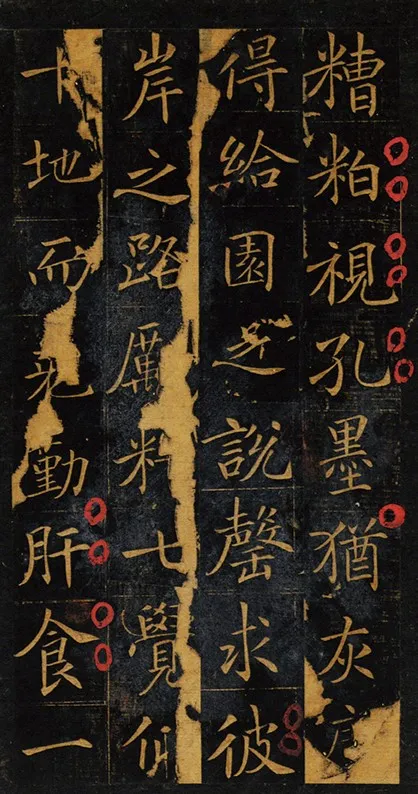 糟粕視孔墨猶灰
得給園之說罄求彼
岸之路厲七覺
十地而勤肝食一